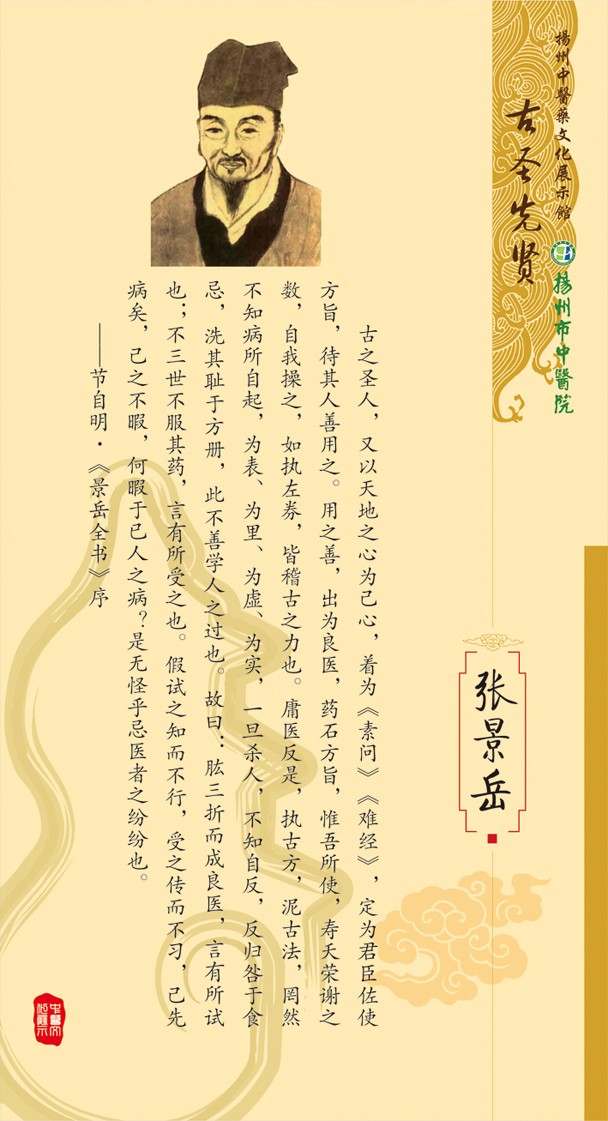 揚州中醫藥文化展示館
揚州市中醫院
古圣先贤
张景岳
古之圣人，又以天地之心为己心，着为《素问》《难经》，定为君臣佐使
方旨，待其人善用之。用之善，出为良医，药石方旨，惟吾所使，寿夭荣谢之
数，自我操之，如执左券，皆稽古之力也。庸医反是，执古方，泥古法，罔然
不知病所自起，为表、为里、为虚、为实，一旦杀人，不知自反，反归咎于食
忌，洗其耻于方册，此不善学人之过也。故曰：肱三折而成良医，言有所试
也；不三世不服其药，言有所受之也。假试之知而不行，受之传而不习，己先
病矣，己之不暇，何暇于已人之病？是无怪乎忌医者之纷纷也。
——节自明·《景岳全书》序